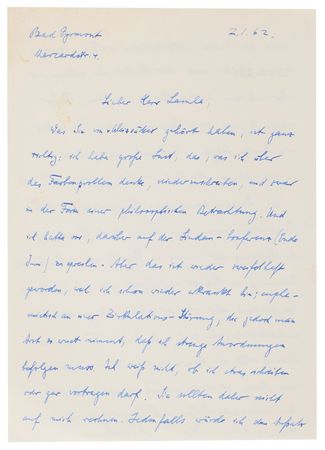 Bad Pyrmont 2.1.62.
Marcardstr. 4.
Lieber Herr
Was Sie von gehört haben, ist ganz
richtig: ich habe große Lust, das, was ich über
das Farbenproblem denke, niederzuschreiben, und zwar
in der Form einer philosophischen Betrachtung. Und
ich hatte vor, darüber auf der Lindau-Conferenz (Ende
Juni) zu sprechen. Aber das ist wieder zweifelhaft
geworden, weil ich schon wieder erkrankt bin;
an einer Zirkulations-Störung, die jedoch mein
Arzt so ernst nimmt, daß ich strenge Anordnungen
befolgen muss. Ich weiß nicht, ob ich etwas schreiben
oder gar vortragen darf. Sie sollten daher nicht
auf mich rechnen. Jedenfalls würde ich den